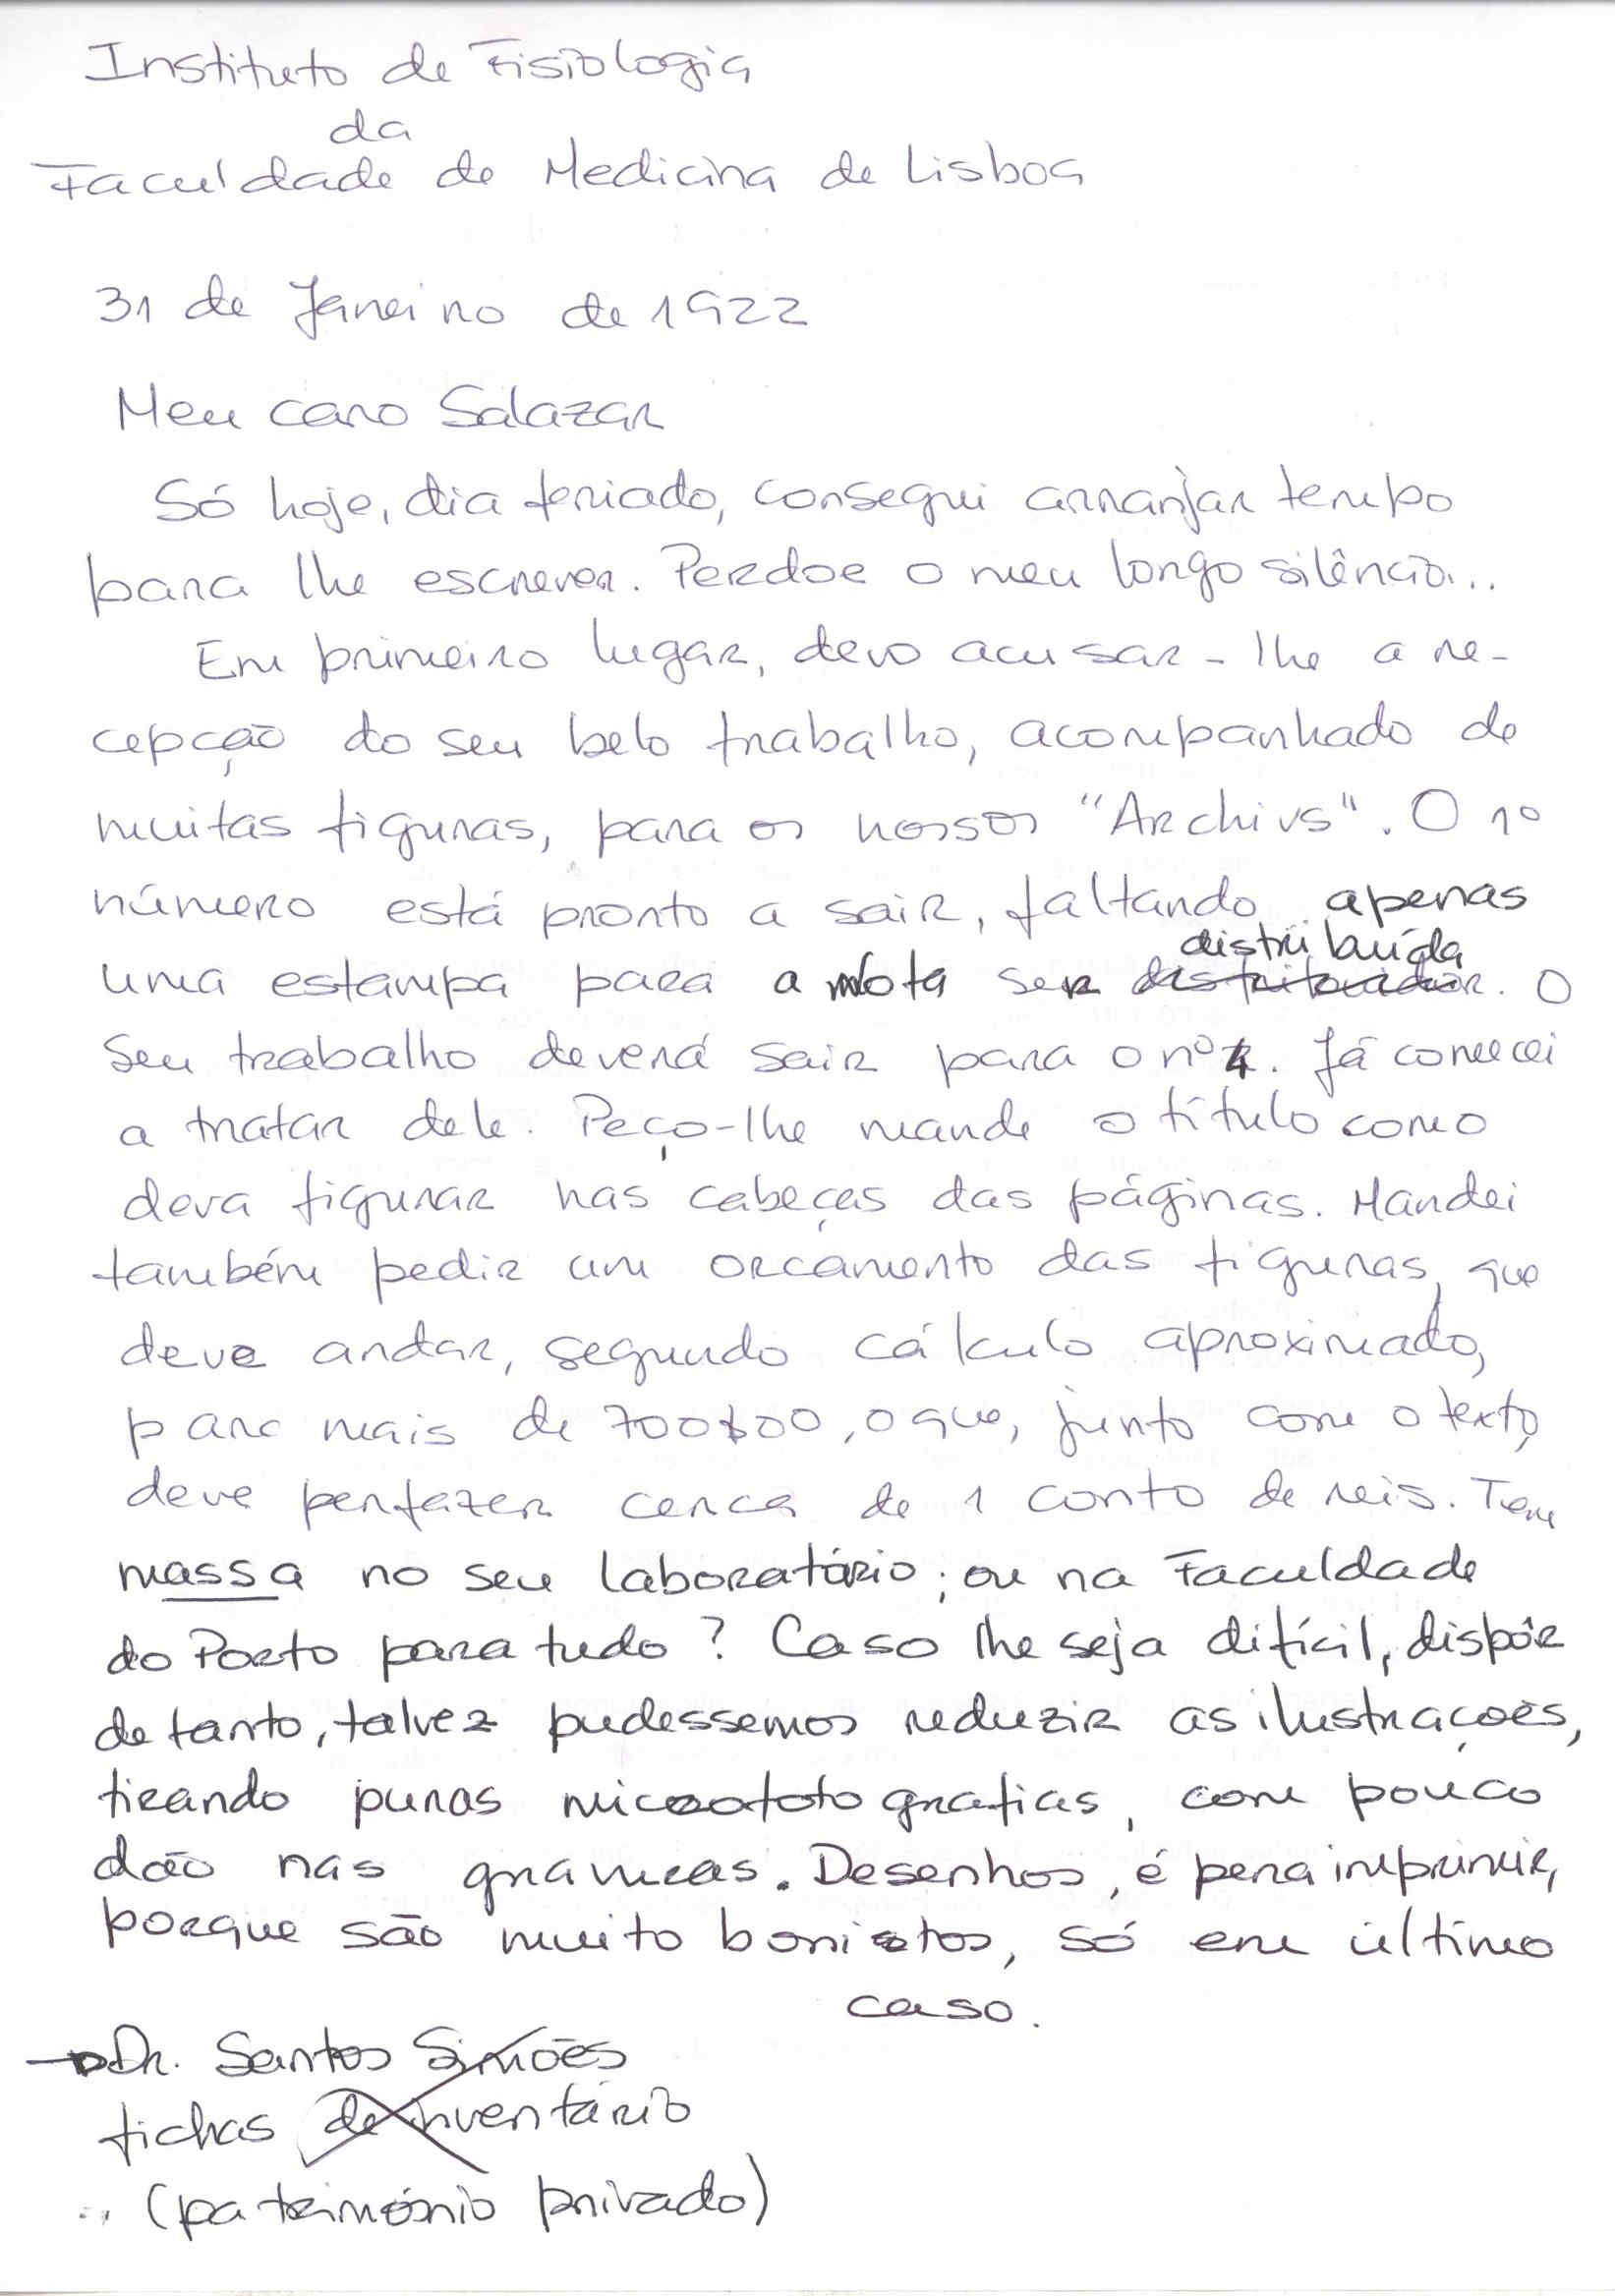 Instituto de Fisiologia
da
Faculdade de Medicina de Lisboa
31 de Janeiro de 1922
Meu caro Salazar
Só hoje, dia feriado, consegui arranjar tempo
para lhe escrever. Perdoe o meu longo silêncio...
Em primeiro lugar, devo acusar-lhe a re-
cepção do seu belo trabalho, acompanhado de
muitas figuras, para os nossos "Archivs". O 1º
número está pronto a sair, faltando apenas
distribuída
uma estampa para a nota ser distribuidor. O
seu trabalho deverá sair para o nº 4. Já comecei
a tratar dele. Peço-lhe mande o título como
deva figurar nas cabeças das páginas. Mandei
também pedir um orcamento das figuras, que
deve andar, segundo cálculo aproximado,
para mais de 700$00, o que, junto com o texto,
deve perfazer cerca de 1 conto de reis. Tem
massa no seu laboratório; ou na Faculdade
do Porto para tudo? Caso lhe seja difícil, dispôr
de tanto, talvez pudessemos reduzir as ilustrações,
tirando puras microfotografias, com pouco
dão nas gravuras. Desenhos, é pena imprimir,
porque são muito bonitos, só em último
caso.
Dr. Santos Simões
fichas de inventário
(património privado)